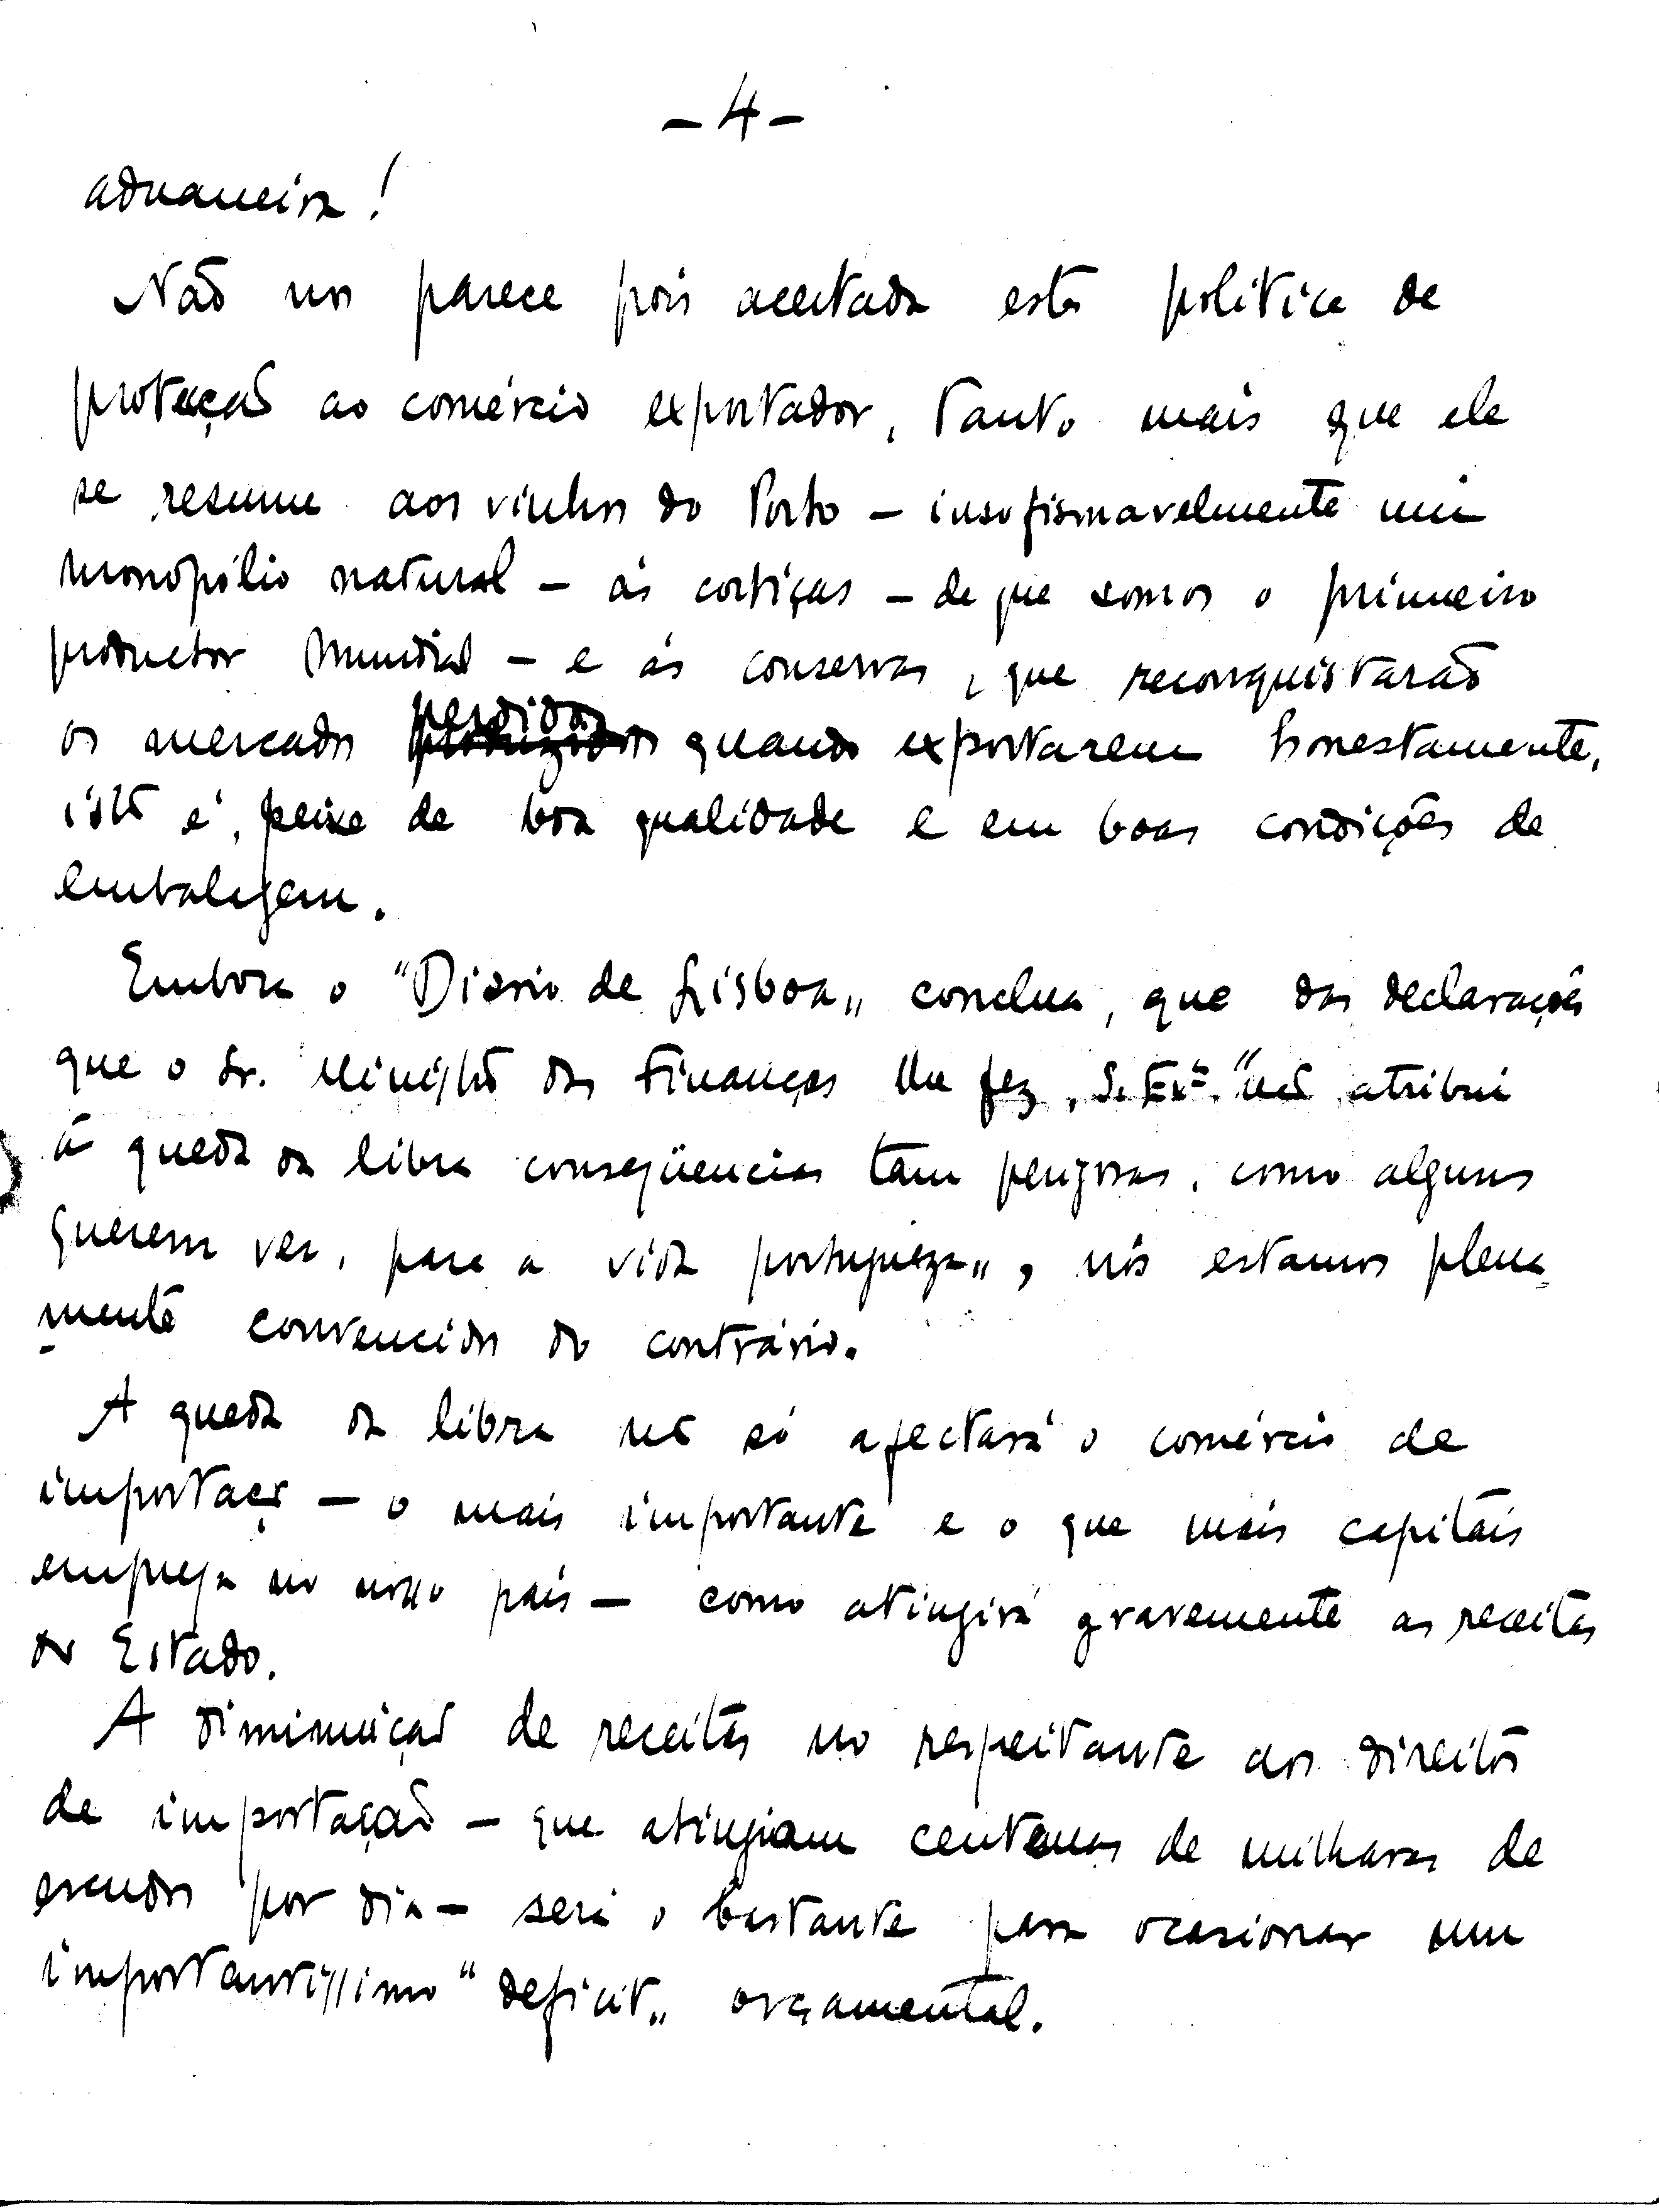 - 4 -
aduaneira!
Não nos parece pois acertada esta politica de
protecção ao comércio exportador, tanto mais que ele
se resume aos vinhos do Porto – insofismavelmente um
monopólio natural – ás cortiças – de que somos o primeiro
productor mundial – e ás conservas, que reconquistarão
os mercados perdidos quando exportarem honestamente,
isto é, peixe de boa qualidade e em boas condições de
embalagem.
Embora o "Diario de Lisboa„ conclua, que das declarações
que o Sr. Ministro das Finanças lhe fez, S. Exª. "não atribui
á queda da libra conseqüencias tam perigosas, como alguns
querem ver, para a vida portugueza„, nós estamos plena
mente convencidos do contrário.
A queda da libra não só afectará o comércio de
importação – o mais importante e o que mais capitais
emprega no nosso país – como atingirá gravemente as receitas
do Estado.
A diminuição de receitas no respeitante aos direitos
de importação – que atingiam centenas de milhares de
escudos por dia – será o bastante para ocasionar um
importantissimo "deficit„ orçamental.